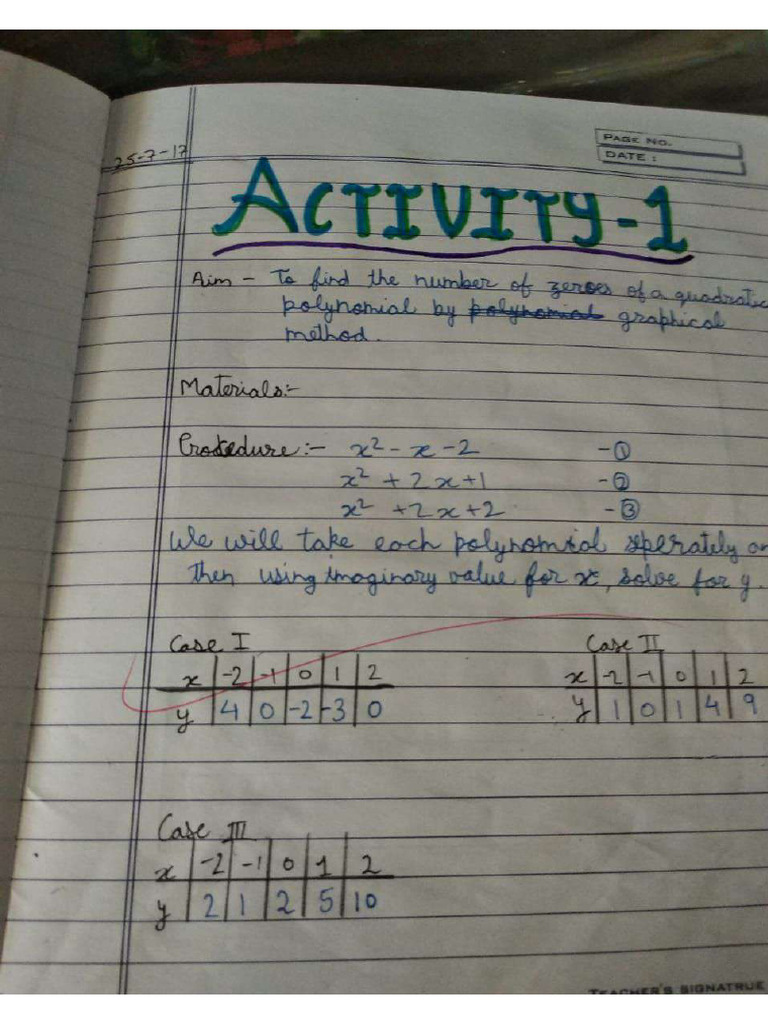 PAGE NO.
DATE :
25-7-17
ACTIVITY-1
Aim - To find the number of zeroes of a quadratic
polynomial by polynomial graphical
method.
Materials:-
Procedure:- x² - x - 2 - ①
x² + 2x + 1 - ②
x² + 2x + 2 - ③
We will take each polynomial sperately an
then using imaginary value for x, solve for y.
Case I Case II
x -2 -1 0 1 2 x -2 -1 0 1 2
y 4 0 -2 -3 0 y 1 0 1 4 9
Case III
x -2 -1 0 1 2
y 2 1 2 5 10
TEACHER'S SIGNATRUE